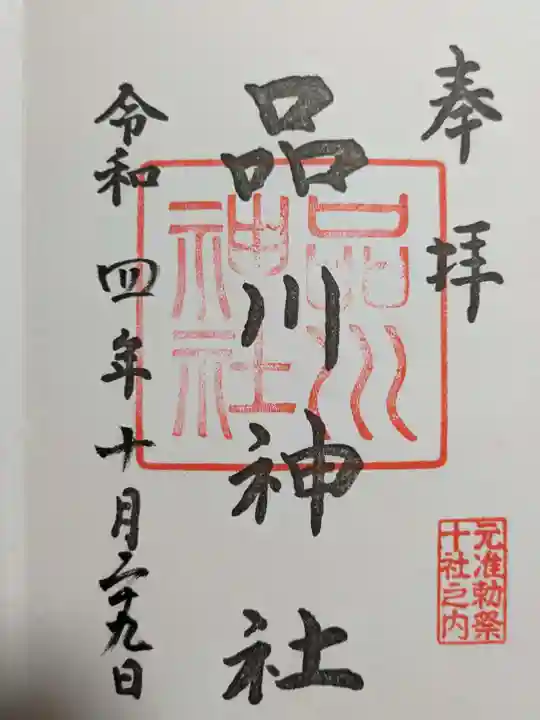 奉拝
品川神社
品川
神社
令和四年十月二十九日
元准勅祭
十社之内